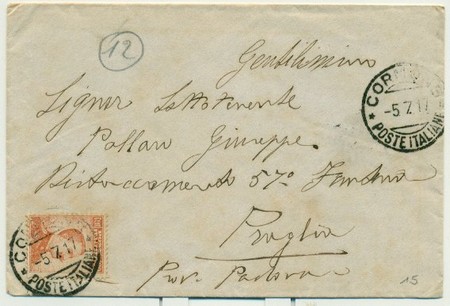 12
Gentilissimo
Signor Sottotenente
Pallaro Giuseppe
Distaccamento 57º Fanteria
Praglia
Prov. Padova
-5.7.17
* POSTE ITALIANE
-5.7.17
POSTE ITALIANE
15